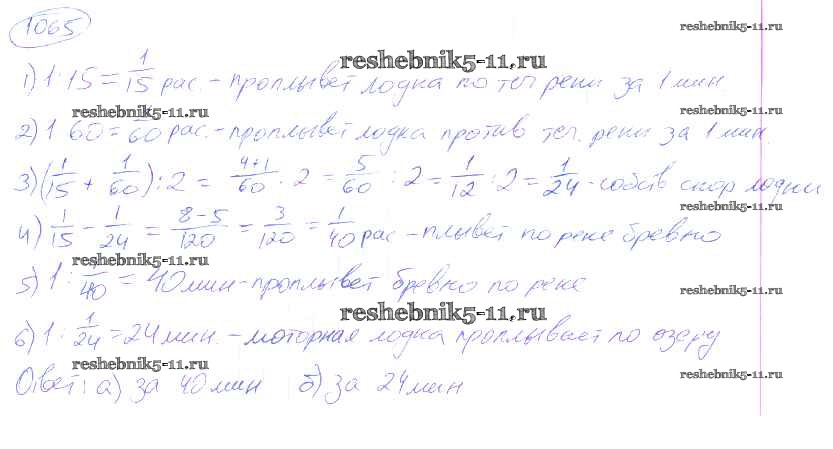 1065
reshebnik5-11.ru
reshebnik5-11.ru
1) 1 : 15 = 1/15 рас. - проплывет лодка по теч реки за 1 мин.
reshebnik5-11.ru
reshebnik5-11.ru
2) 1 60 = 60 рас. - проплывет лодка против теч. реки за 1 мин.
3) (1/15 + 1/60) : 2 = 4+1/60 : 2 = 5/60 : 2 = 1/12 : 2 = 1/24 - собств скор лодки
reshebnik5-11.ru
4) 1/15 - 1/24 = 8-5/120 = 3/120 = 1/40 рас - плывет по реке бревно
reshebnik5-11.ru
5) 1 : 1/40 = 40 мин - проплывет бревно по реке
reshebnik5-11.ru
reshebnik5-11.ru
6) 1 : 1/24 = 24 мин. - моторная лодка проплывает по озеру
reshebnik5-11.ru
reshebnik5-11.ru
Ответ: а) за 40 мин б) за 24 мин